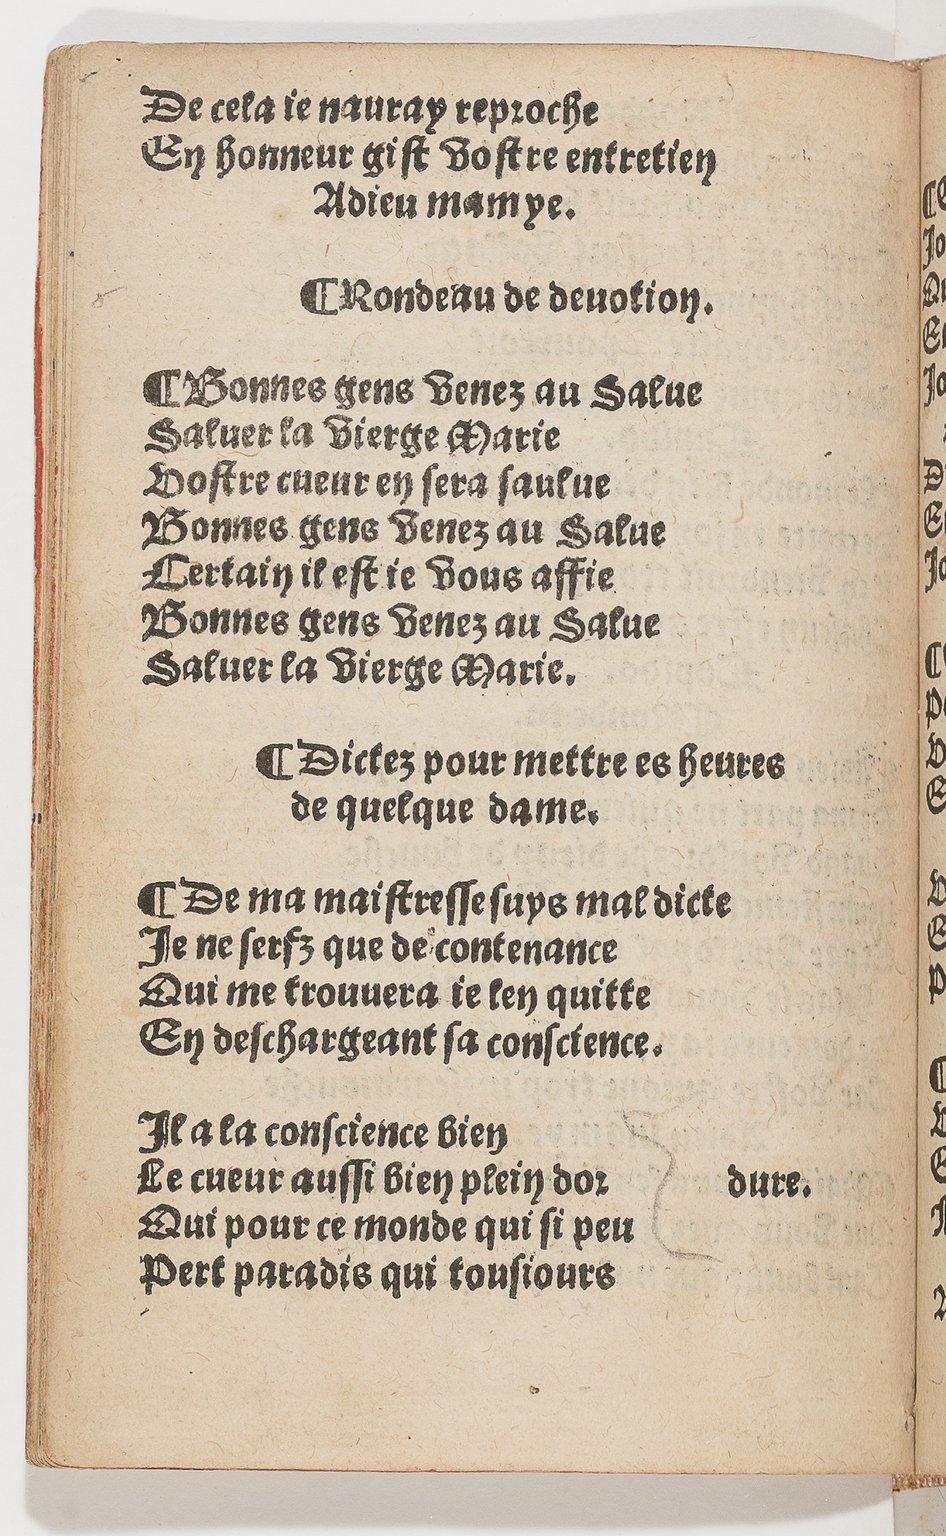 De cela ie nauray reproche
En honneur gist vostre entretien
Adieu mamye.
¶Rondeau de deuotion.
¶Bonnes gens venez au Salue
Saluer la vierge Marie
Vostre cueur en sera saulue
Bonnes gens venez au Salue
Certain il est ie vous affie
Bonnes gens venez au Salue
Saluer la vierge Marie.
¶Dictez pour mettre es heures
de quelque dame.
¶De ma maistresse suys mal dicte
Je ne serfz que de contenance
Qui me trouuera ie len quitte
En deschargeant sa conscience.
Il a la conscience bien
Le cueur aussi bien plein dor dure.
Qui pour ce monde qui si peu
Pert paradis qui tousiours